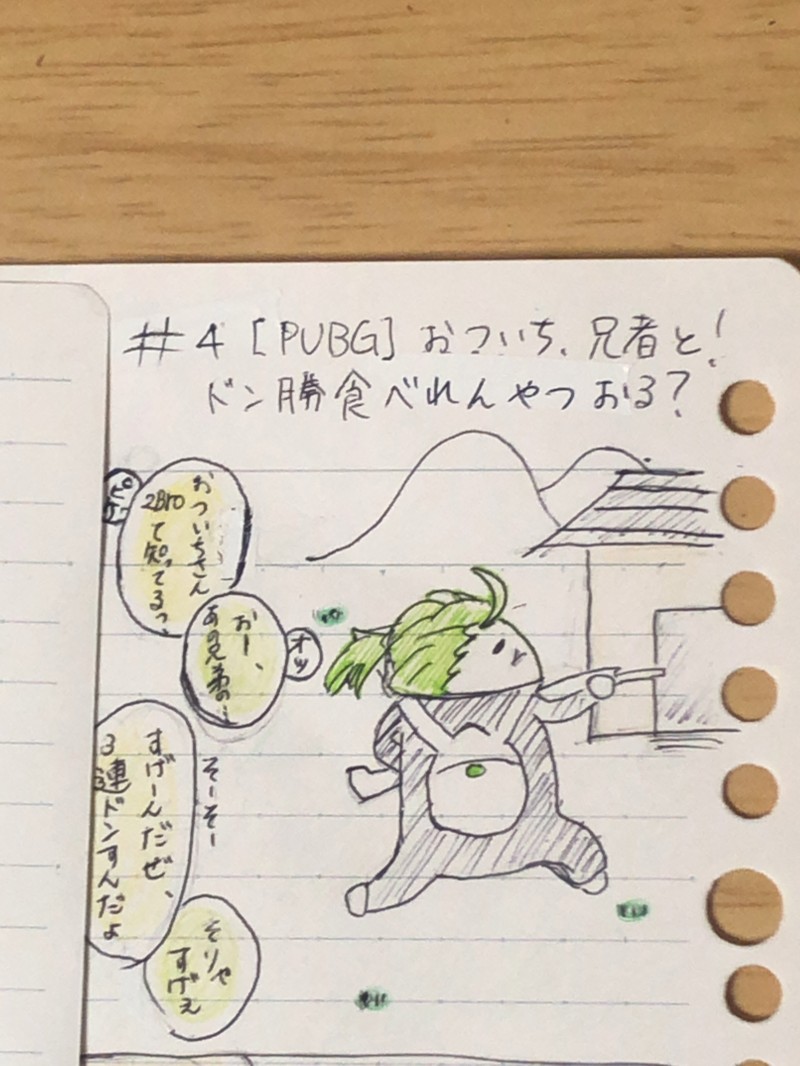 #4 [PUBG] おついち、兄者と!
ドン勝食べれんやつおる?
おついちさん
2Broて知ってるっ
おー、
あの兄弟の…
オッ
そーそー
すげーんだぜ、
3連ドンすんだよ
そりゃ
すげぇ